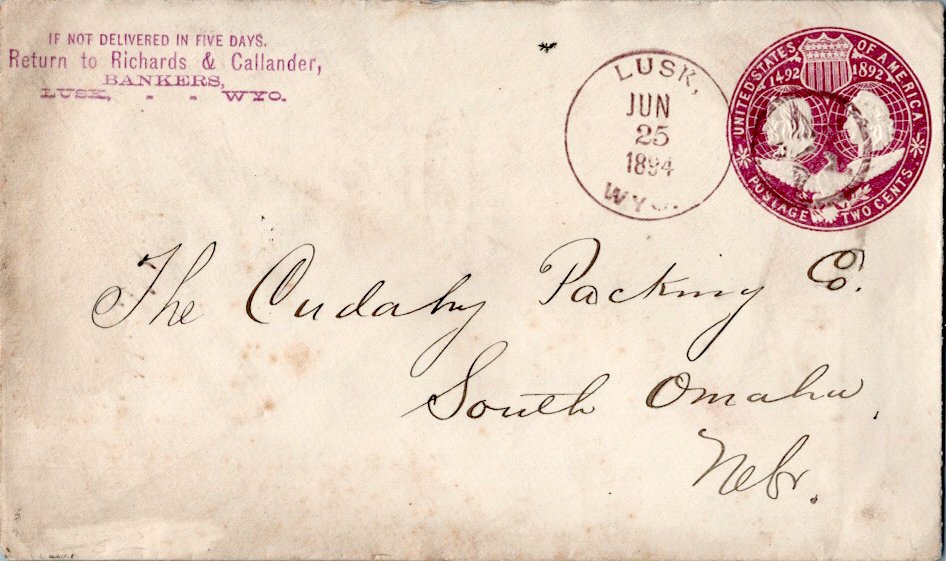 IF NOT DELIVERED IN FIVE DAYS.
Return to Richards & Callander,
BANKERS,
LUSK, - - WYO.
LUSK,
JUN
25
1894
WYO.
UNITED STATES OF AMERICA
1492 1892
POSTAGE TWO CENTS
The Cudahy Packing Co.
South Omaha,
Nebr.